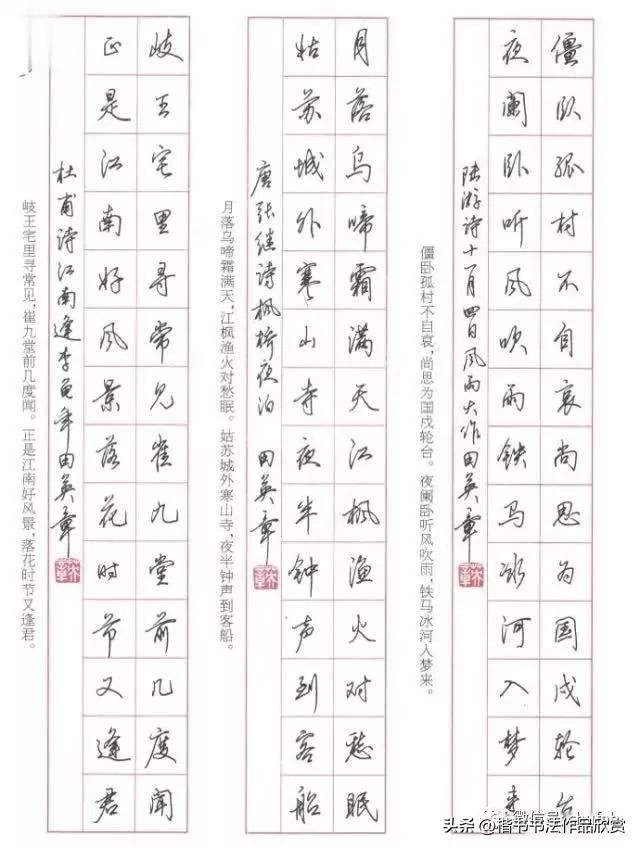 僵卧孤村不自哀尚思为国戍轮台
夜阑卧听风吹雨铁马冰河入梦来
陆游诗十一月四日风雨大作田英章
僵卧孤村不自哀，尚思为国戍轮台。夜阑卧听风吹雨，铁马冰河入梦来。
月落乌啼霜满天江枫渔火对愁眠
姑苏城外寒山寺夜半钟声到客船
唐张继诗枫桥夜泊 田英章
月落乌啼霜满天，江枫渔火对愁眠。姑苏城外寒山寺，夜半钟声到客船。
岐王宅里寻常见崔九堂前几度闻
正是江南好风景落花时节又逢君
杜甫诗江南逢李龟年田英章
岐王宅里寻常见，崔九堂前几度闻。正是江南好风景，落花时节又逢君。
微信号
头条@楷书书法作品欣赏